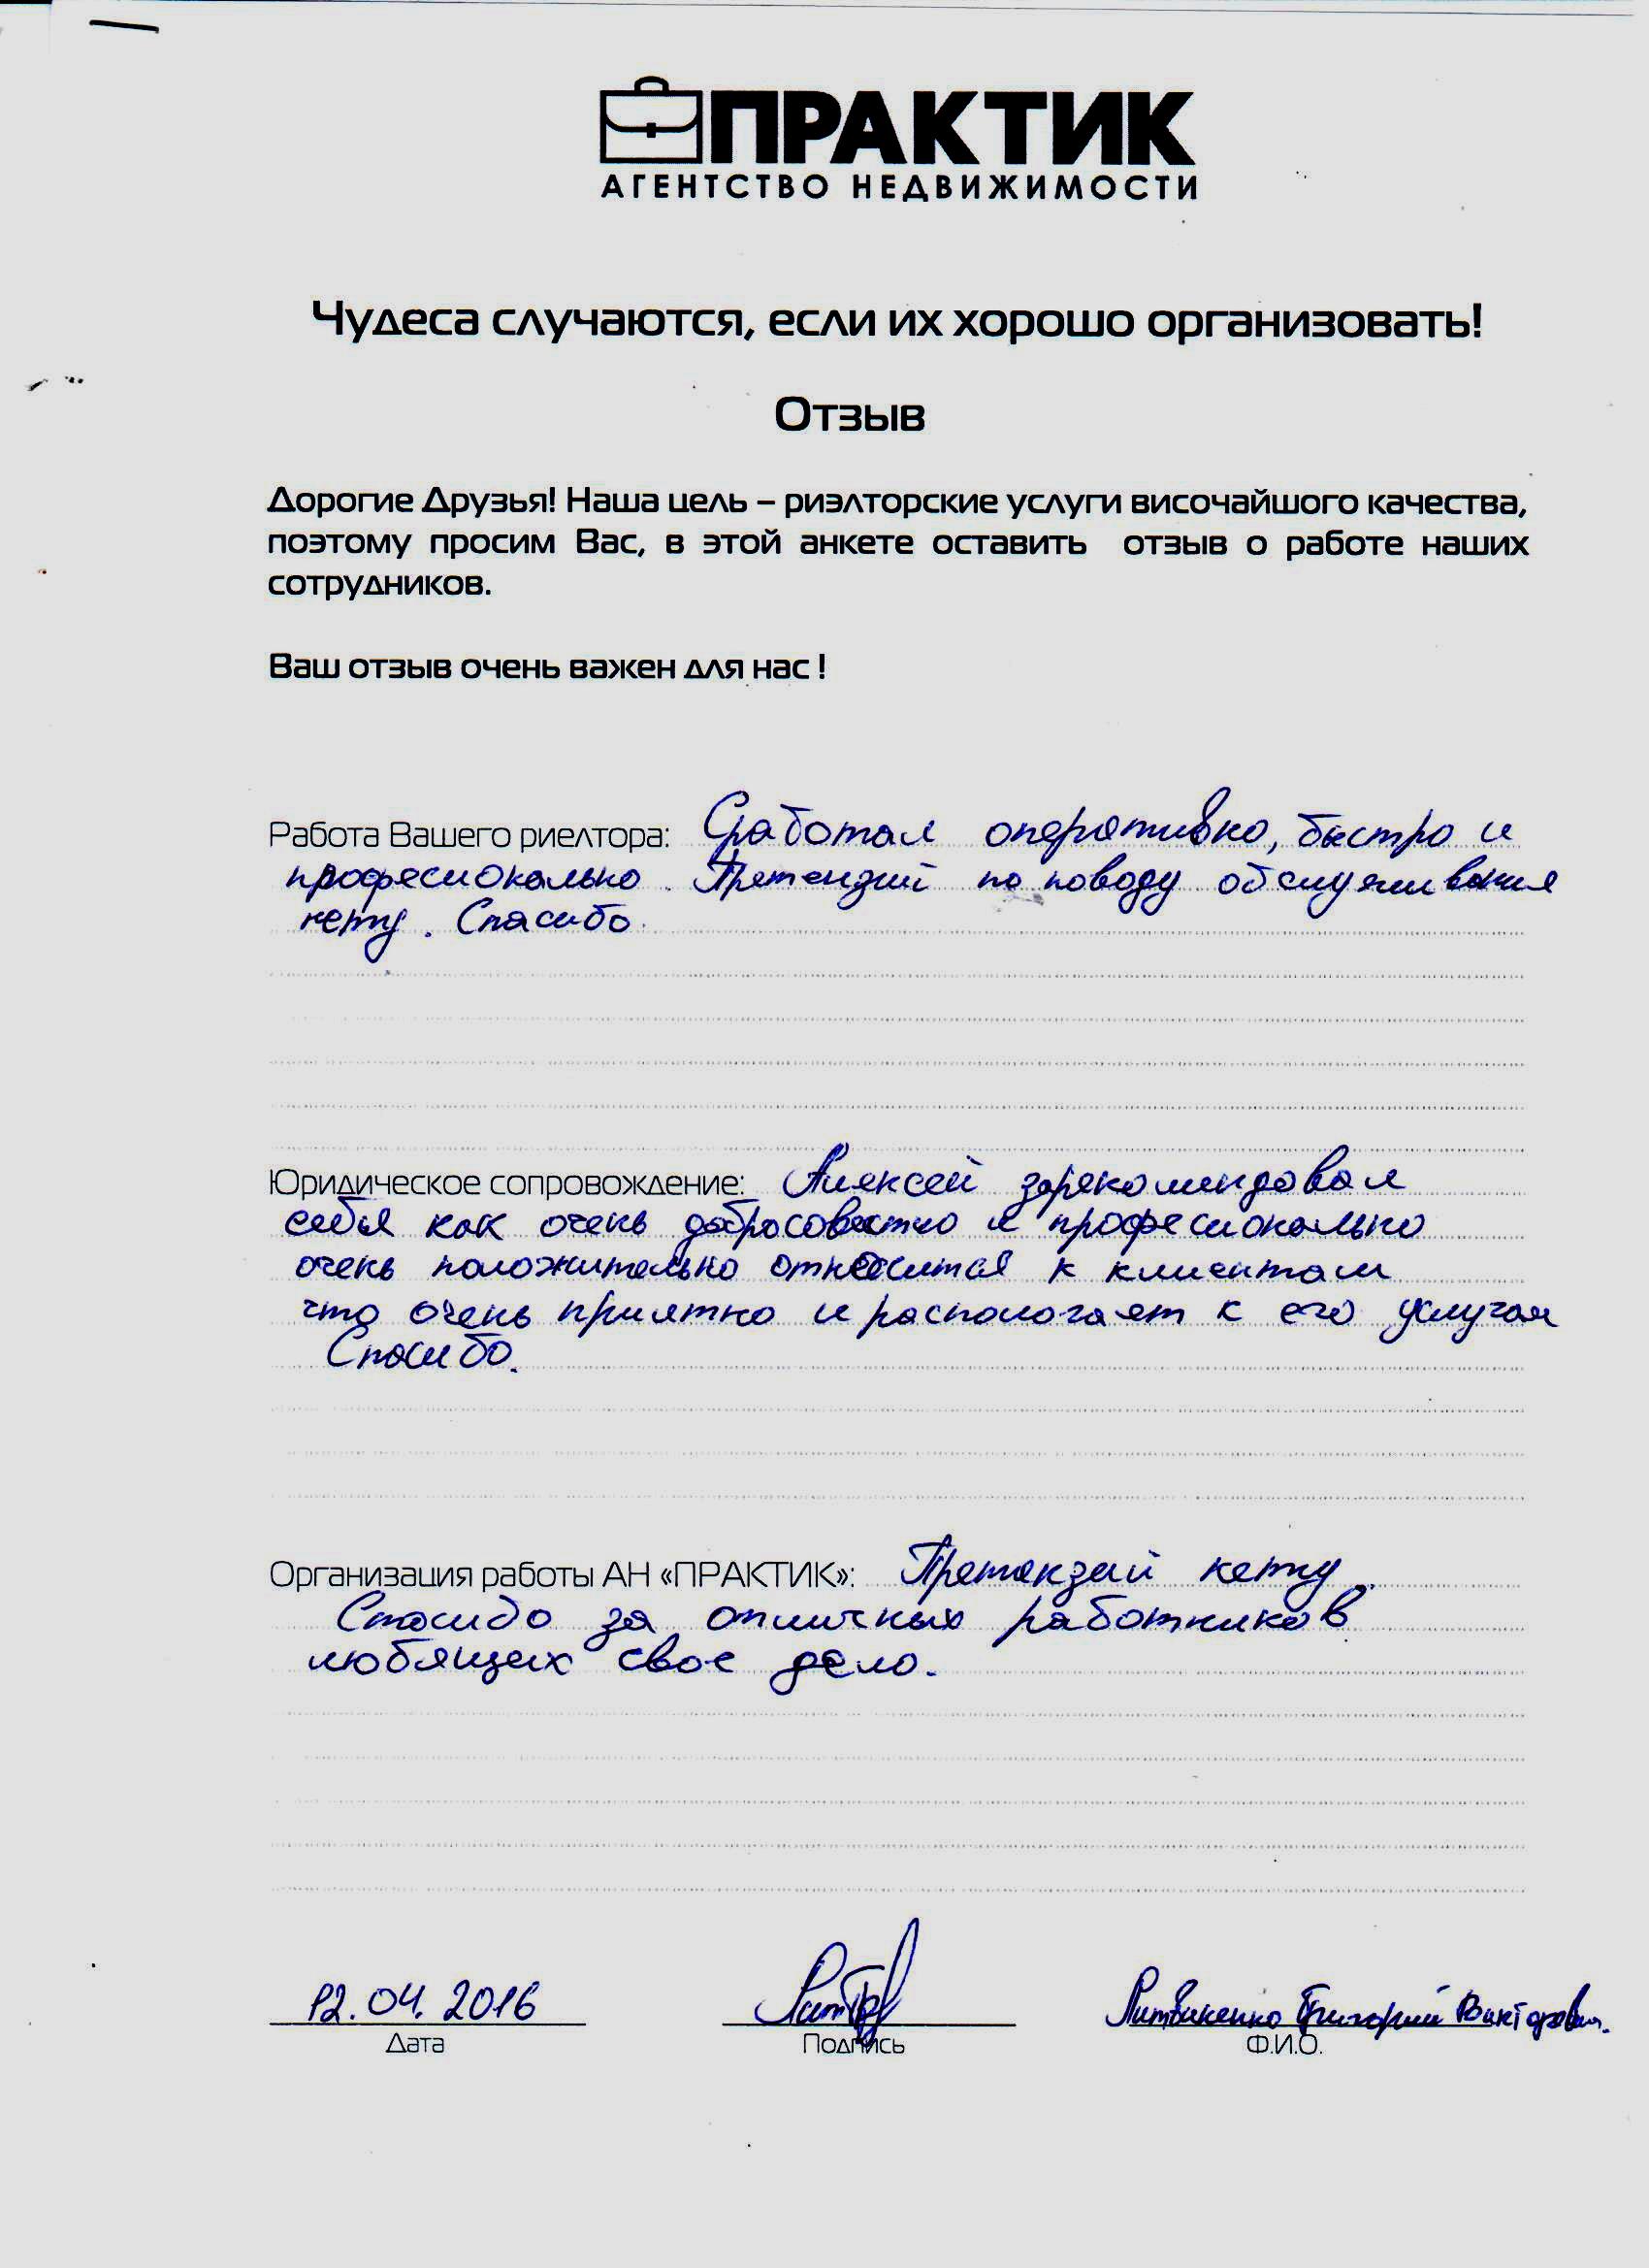 ПРАКТИК
АГЕНТСТВО НЕДВИЖИМОСТИ
Чудеса случаются, если их хорошо организовать!
Отзыв
Дорогие Друзья! Наша цель – риэлторские услуги височайшого качества,
поэтому просим Вас, в этой анкете оставить отзыв о работе наших
сотрудников.
Ваш отзыв очень важен для нас !
Работа Вашего риелтора: Сработал оперативно, быстро и
професионально. Претензий по поводу обслуживания
нету. Спасибо.
Юридическое сопровождение: Алексей зарекомендовал
себя как очень добросовестно и професионально
очень положительно относится к клиентам
что очень приятно и распологает к его услугам
Спасибо.
Организация работы АН «ПРАКТИК»: Претензий нету.
Спасибо за отличных работников
любящих свое дело.
12.04.2016
Дата
Подпись
Литвиненко Григорий Викторович.
Ф.И.О.